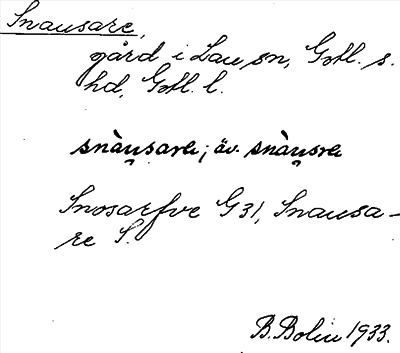 Snausare,
gård i Lau sn, Gotl. s.
hd, Gotl. l.
snàu̯sarɐ; äv. snàu̯srɐ
Snosarfve G31, Snausa-
re S.
B. Bolin 1933.